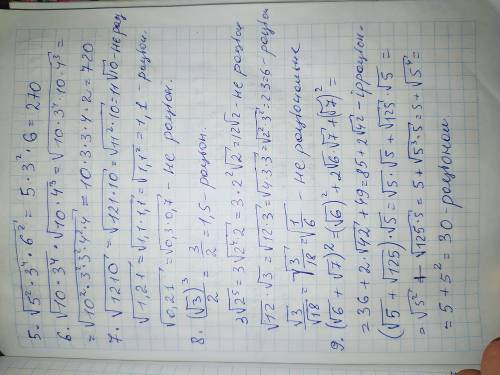 5. √5²·3⁴·6² = 5·3²·6 = 270
6. √10·3⁴ · √10·4³ = √10·3⁴·10·4³ =
= √10²·3²·3²·4²·4 = 10·3·3·4·2 = 720
7. √1210 = √121·10 = √11²·10 = 11√10 - не рац
√1,21 = √1,1·1,1 = √1,1² = 1,1 - рацион.
√0,21 = √0,3·0,7 - не рацион.
8. (√3)³/2 = 3/2 = 1,5 - рацион.
3√2⁵ = 3√2⁴·2 = 3·2²√2 = 12√2 - не рацион
√12·√3 = √12·3 = √4·3·3 = √2²·3² · 2·3 = 6 - рацион
√3/√18 = √3/18 = √1/6 - не рациональные
9. (√6 + √7)² = (√6)² + 2√6·√7 + (√7)² =
= 36 + 2·√42 + 49 = 85 + 2√42 - иррацион.
(√5 + √125)·√5 = √5·√5 + √125·√5 =
= √5² + √125·5 = 5 + √5³·5 = 5 + √5⁴
= 5 + 5² = 30 - рационал